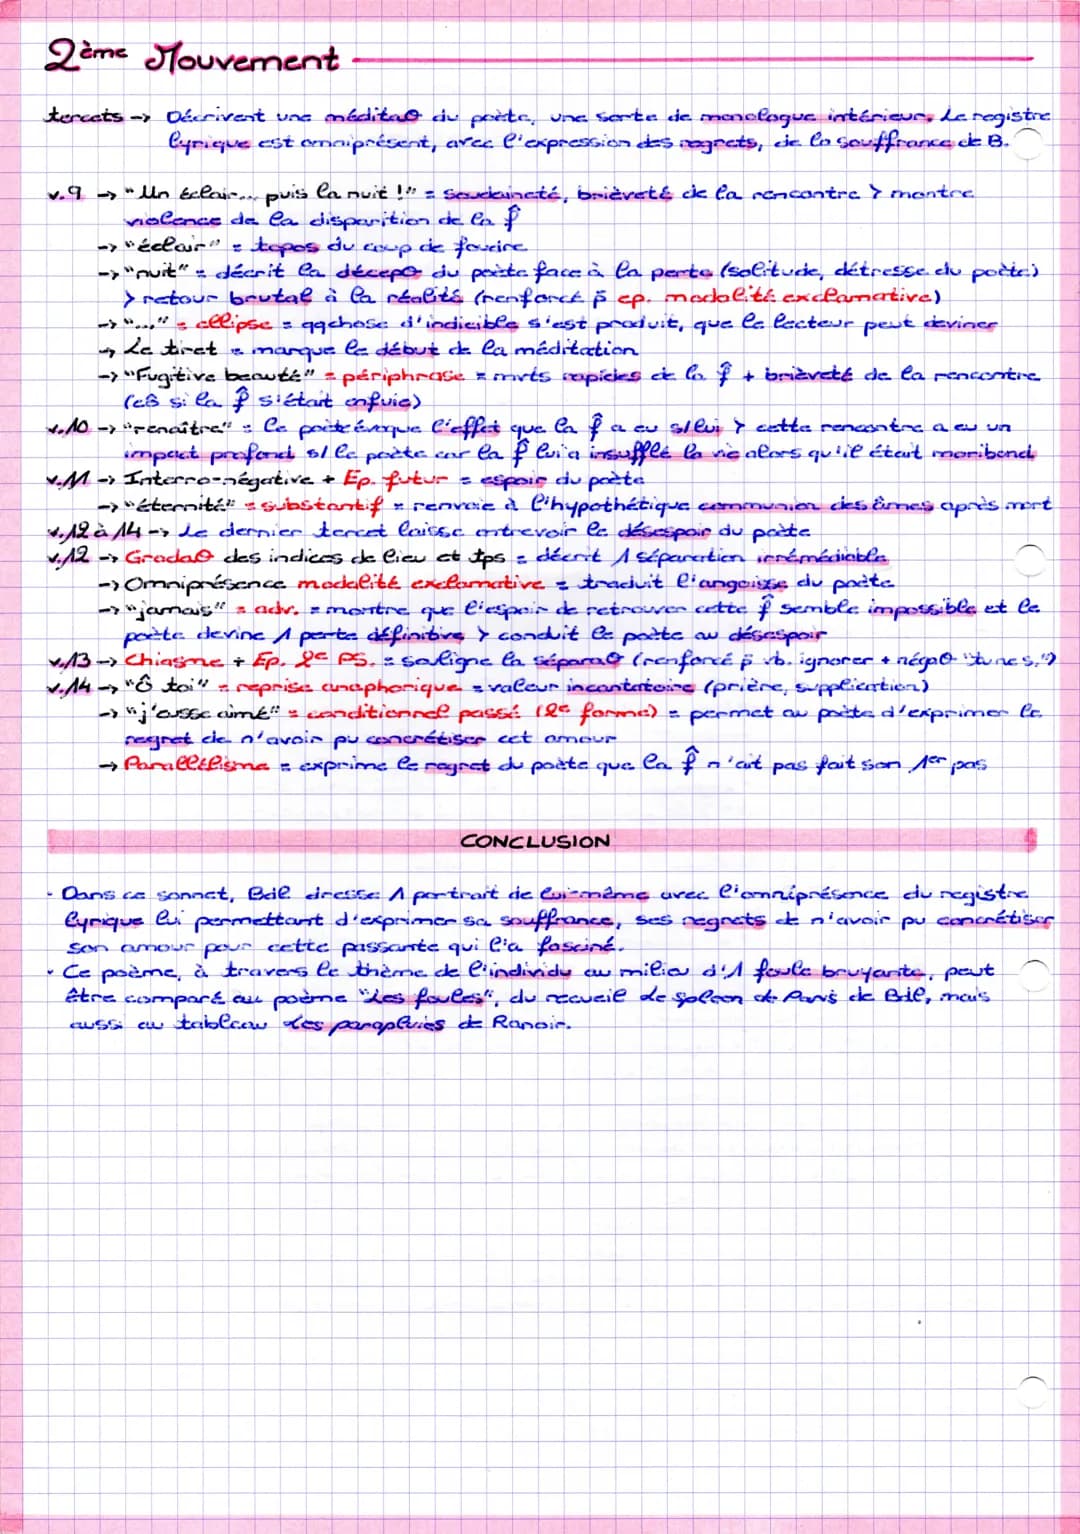 2ème Mouvement
tercets -> Décrivent une méditaO du poète, une sorte de monologue intérieur. Le registre
lyrique est omniprésent, avec l'expression des regrets, de la souffrance de B.
v.9 -> "Un éclair... puis la nuit !" = Soudaineté, brièveté de la rencontre > montre
violence de la disparition de la f̂
-> "éclair" = topos du coup de foudre
-> "nuit" = décrit la décepO du poète face à la perte (solitude, détresse du poète)
> retour brutal à la réalité (renforcé p̄ ep. modalité exclamative)
-> "..." = ellipse = qqchose d'indicible s'est produit, que le lecteur peut deviner
-> Le tiret = marque le début de la méditation
-> "Fugitive beauté" = périphrase = mvts rapides de la f̂ + brièveté de la rencontre
(cô si la f̂ s'était enfuie)
v.10 -> "renaître" = Le poète évoque l'effet que la f̂ a eu s/lui > cette rencontre a eu un
impact profond s/ le poète car la f̂ lui a insufflé la vie alors qu'il était moribond
v.11 -> Interro-négative + Ep. futur = espoir du poète
-> "éternité" = substantif = renvoie à l'hypothétique communion des âmes après mort
v.12 à 14 -> Le dernier tercet laisse entrevoir le désespoir du poète
v.12 -> GradaO des indices de lieu et tps = décrit 1 séparation irrémédiable
-> Omniprésence modalité exclamative = traduit l'angoisse du poète
-> "jamais" = adv. = montre que l'espoir de retrouver cette f̂ semble impossible et le
poète devine 1 perte définitive > conduit le poète au désespoir
v.13 -> Chiasme + Ep. 2e PS. = souligne la séparaO (renforcé p̄ vb. ignorer + négaO "tu ne s.")
v.14 -> "Ô toi" = reprise anaphorique = valeur incantatoire (prière, supplication)
-> "j'eusse aimé" = conditionnel passé (2e forme) = permet au poète d'exprimer le
regret de n'avoir pu concrétiser cet amour
-> Parallélisme = exprime le regret du poète que la f̂ n'ait pas fait son 1er pas
CONCLUSION
· Dans ce sonnet, Bdl dresse 1 portrait de lui-même avec l'omniprésence du registre
lyrique lui permettant d'exprimer sa souffrance, ses regrets de n'avoir pu concrétiser
son amour pour cette passante qui l'a fasciné.
· Ce poème, à travers le thème de l'individu au milieu d'1 foule bruyante, peut
être comparé au poème "Les foules", du recueil Le spleen de Paris de Bdl, mais
aussi au tableau Les parapluies de Renoir.